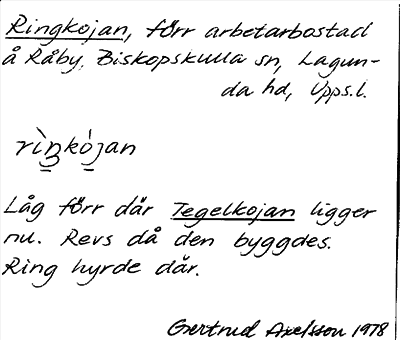 Ringkojan, förr arbetarbostad
å Råby, Biskopskulla sn, Lagun-
da hd, Upps.l.
rìŋkójan
Låg förr där Tegelkojan ligger
nu. Revs då den byggdes.
Ring hyrde där.
Gertrud Axelsson 1978